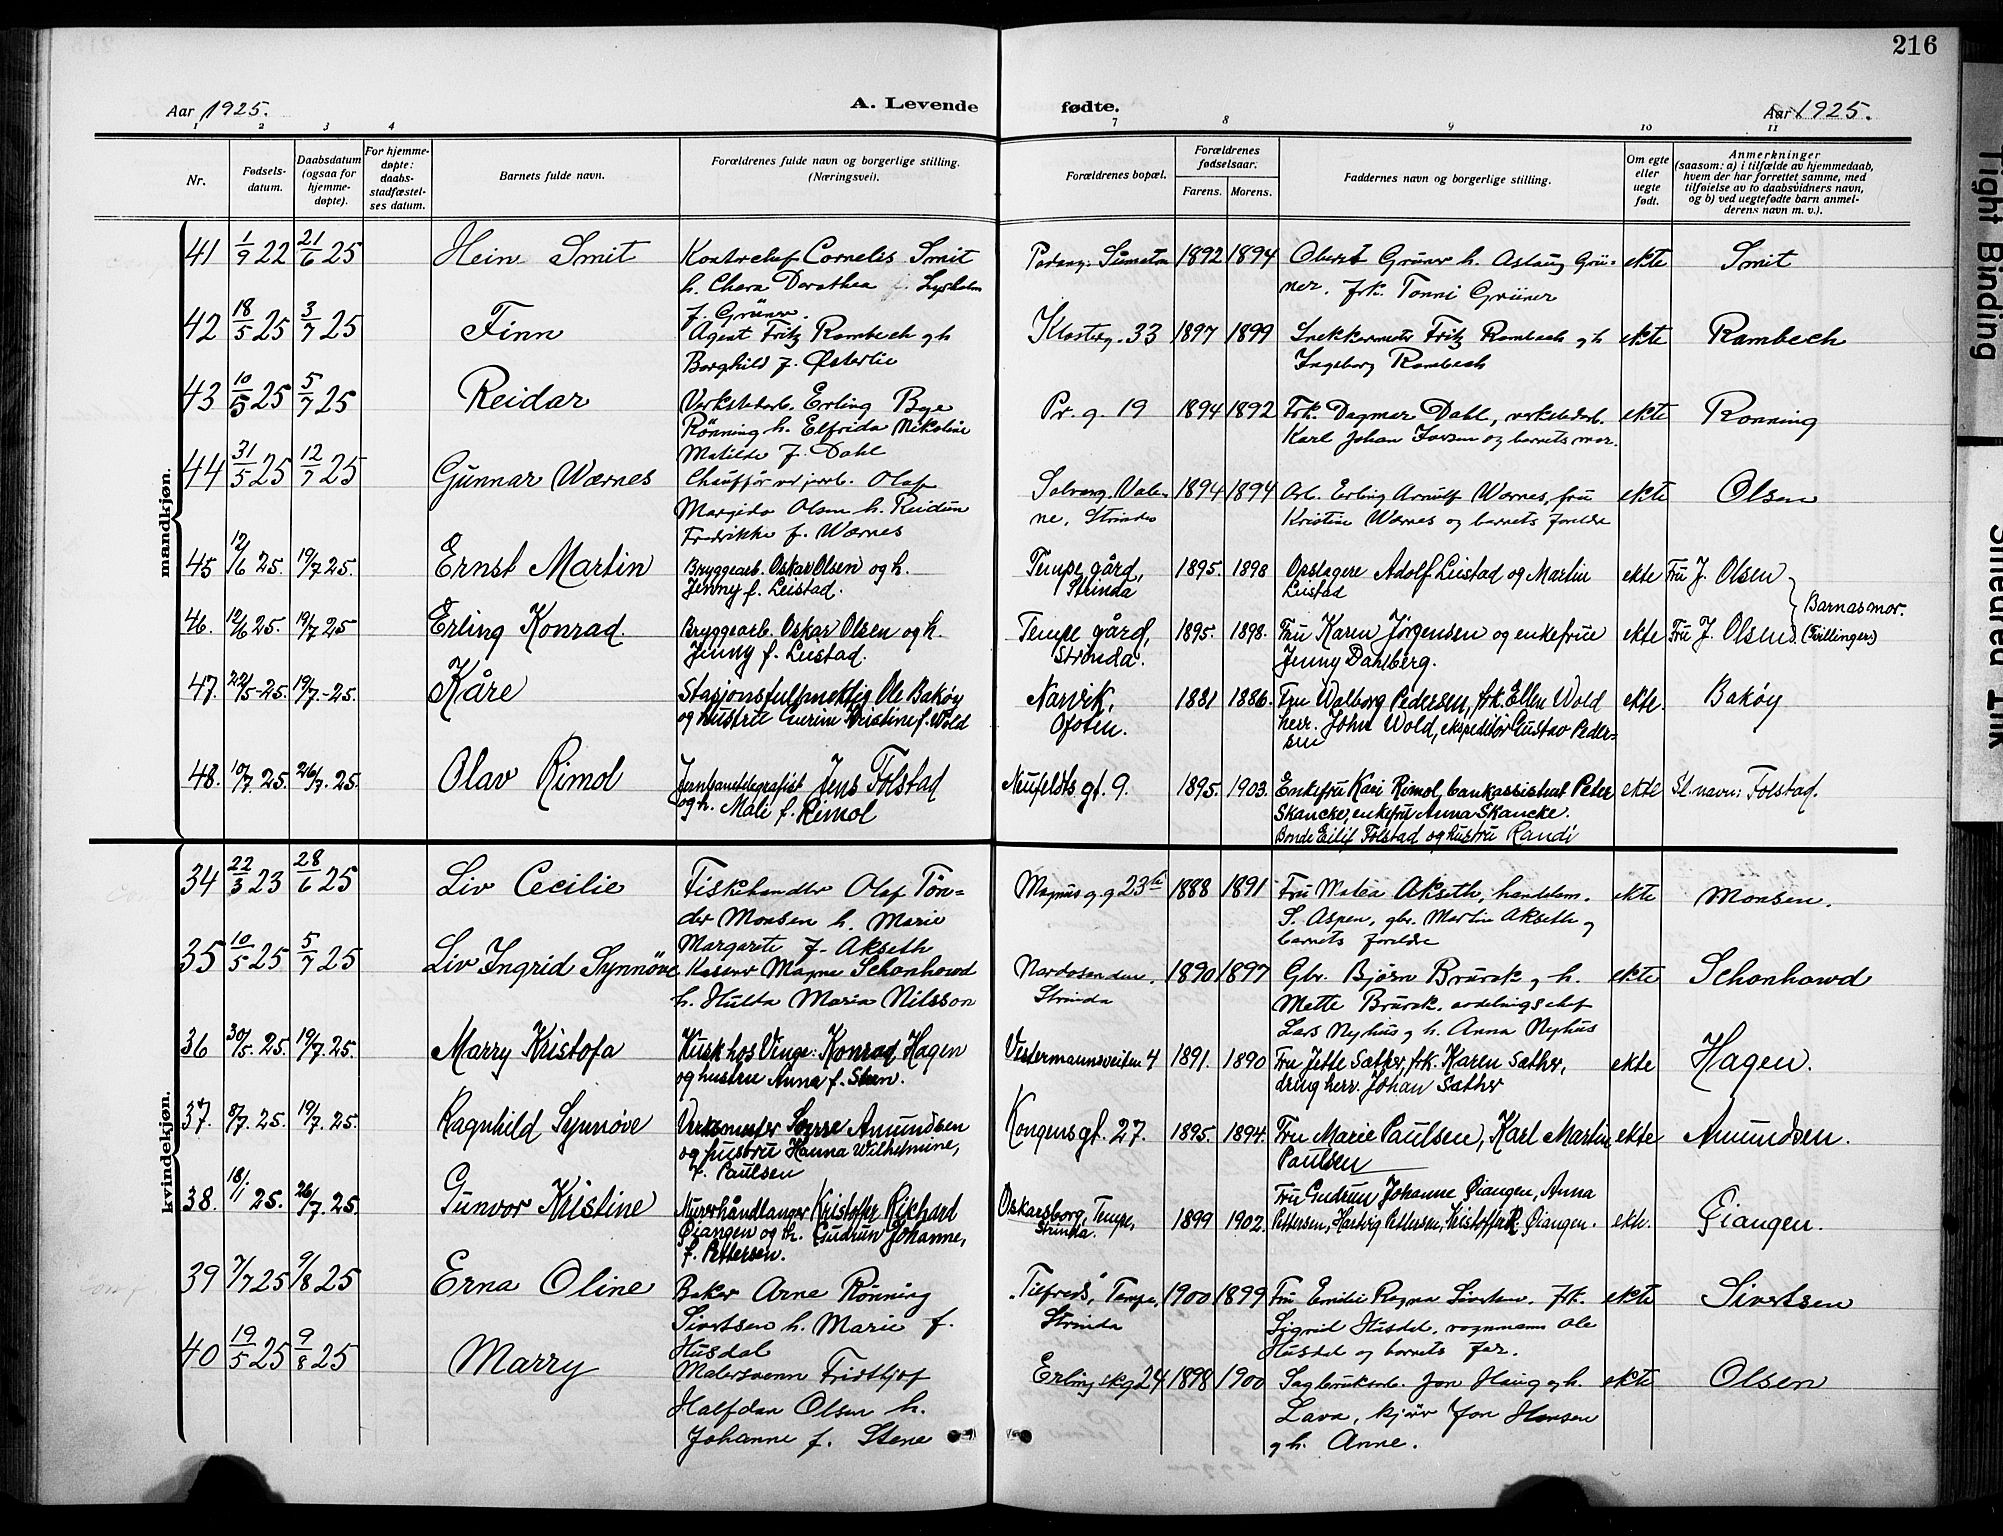 216
Aar 1925.
A. Levende
fødte.
Aar 1925.
1 2 3 4 7 8 9 10 11
Nr.
Fødsels-
datum.
Daabsdatum
(ogsaa for
hjemme-
døpte).
For hjemme-
døpte:
daabs-
stadfæstel-
ses datum.
Barnets fulde navn.
Forældrenes fulde navn og borgerlige stilling.
(Næringsvei).
Forældrenes bopæl.
Forældrenes
fødselsaar.
Farens.
Morens.
Faddernes navn og borgerlige stilling.
Om egte
eller
uegte
født.
Anmerkninger
(saasom: a) i tilfælde av hjemmedaab,
hvem der har forrettet samme, med
tilføielse av to daabsvidners navn,
og b) ved uegtefødte barn anmel-
derens navn m. v.).
mandkjøn.
41 1/9 22 21/6 25 Hein Smit Kontorchef Cornelis Smit Padang. Sumatra 1892 1894 Oberst Grüner h. Aslaug Grü- ekte Smit
h. Chara Dorothea f. Lysholm ner. frk. Tonni Grüner
f. Grüner.
42 18/5 25 3/7 25 Finn Agent Fritz Rambech og h Klosterg. 33 1897 1899 Snekkermester Fritz Rambech og h ekte Rambech
Borghild f. Østerlie Ingeborg Rambech
43 10/5 25 5/7 25 Reidar Verkstedarb. Erling Bye Pr. g. 19 1894 1892 Frk. Dagmar Dahl, verkstedarb. ekte Rønning
Rönning h. Elfrida Nikoline Karl Johan og barnets mor.
Matilde f. Dahl
44 31/5 25 12/7 25 Gunnar Wærnes Chauffør Olaf Solvang, Valen- 1894 1894 Arb. Erling Arnulf Wærnes, fru ekte Olsen
Margido Olsen h. Reidun ne, Strinda Kristine Wærnes og barnets foreldre
Fredrikke f. Wærnes
45 12/6 25. 19/7 25. Ernst Martin Bryggearb. Oskar Olsen og h. Tempe gård, 1895. 1898 Opslagere Adolf Leistad og Martin ekte Fru J. Olsen
Jenny f. Leistad. Strinda Leistad
Barnas mor.
46. 12/6 25. 19/7 25 Erling Konrad. Bryggearb. Oskar Olsen og h. Tempe gård, 1895. 1898. Fru Karen Jörgensen og enkefrue ekte Fru J. Olsen. (Tvillinger)
Jenny f. Leistad. Strinda. Jenny Dahlberg.
47. 22/5-25. 19/7-25. Kåre Stasjonsfullmektig Ole Bakøy Narvik, 1881 1886. Fru Walborg Pedersen, frk. Ellen Wold ekte. Bakøy
og hustru Gurine Kristine f. Wold Ofoten. herr. John Wold, ekspeditør Gustav Peder-
sen
48. 10/7 25. 26/7. 25. Olav Rimol Jernbanetelegrafist Jens Folstad Neufeldts gt. 9. 1895. 1903. Enkefru Kari Rimol, bankassistent Peter ekte Sl.navn: Folstad.
og h. Male f. Rimol Skancke, enkefru Anna Skancke.
Bonde Eilif Folstad og hustru Randi
kvindekjøn.
34 22/3 23 28/6 25 Liv Cecilie Fiskehandler Olaf Tøn- Magnus g. g 23 1888 1891 Fru Matea Akseth, handelsm. ekte Monsen.
der Monsen h. Marie S. Aspen, gbr. Martin Akseth og
Margarete f. Akseth barnets foreldre
35 10/5 25 5/7 25 Liv Ingrid Synnøve Kasser Magne Schonhowd Nardosanden. 1890 1897 Gbr. Bjørn Brurok og h. ekte Schonhowd
h. Hulta Maria Nilsson Strinda Mette Brurok. avdelingschef
Lars Nyhus og h. Anna Nyhus
36 30/5. 25. 19/7. 25. Marry Kristofa Kusk hos Vinge: Konrad Hagen Vestermannsveiten 4 1891. 1890 Fru Jette Sæther, frk. Karen Sæther, ekte Hagen.
og hustru Anna f. Steen. dreng herr. Johan Sæther
37. 8/7. 25. 19/7. 25. Ragnhild Synnøve Verksmester Sverre Amundsen Kongensgt. 27. 1895. 1894. Fru Marie Paulsen, Karl Martin ekte Amundsen.
og hustru Hanna Wilhelmine, Paulsen
f. Paulsen
38. 18/1 25. 26/7. 25. Gunvor Kristine Murerhåndlanger Kristoffer Rikhard Oskarsborg, Tempe, 1899 1902. Fru Gudrun Johanne Øiangen, Anna ekte. Øiangen.
Øiangen og h. Gudrun Johanne, Strinda. Pettersen, Hartvig Pettersen, Kristoffer R. Øiangen.
f. Pettersen.
39 7/7 25 9/8 25 Erna Oline Baker Arne Rönning "Tilfreds", Tempe, 1900 1899 Fru Emilie Ragna Sivertsen. frk. ekte Sivertsen
Sivertsen h. Marie f. Strinda Sigrid Husdal, vognmann Ole
Husdal Husdal og barnets far.
40 19/5 25 9/8 25 Marry Malersvenn Fridtjof Erling skg 24 1898 1900 Sagbruksarb. Jon Haug og h. ekte Olsen
Halfdan Olsen h. Lava, kjører Jon Hansen
Johanne f. Stene og h. Anne.
Tight Binding
Smeared Ink